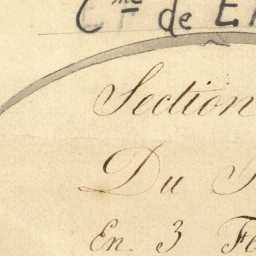 Cne de
Section
Du
En 3